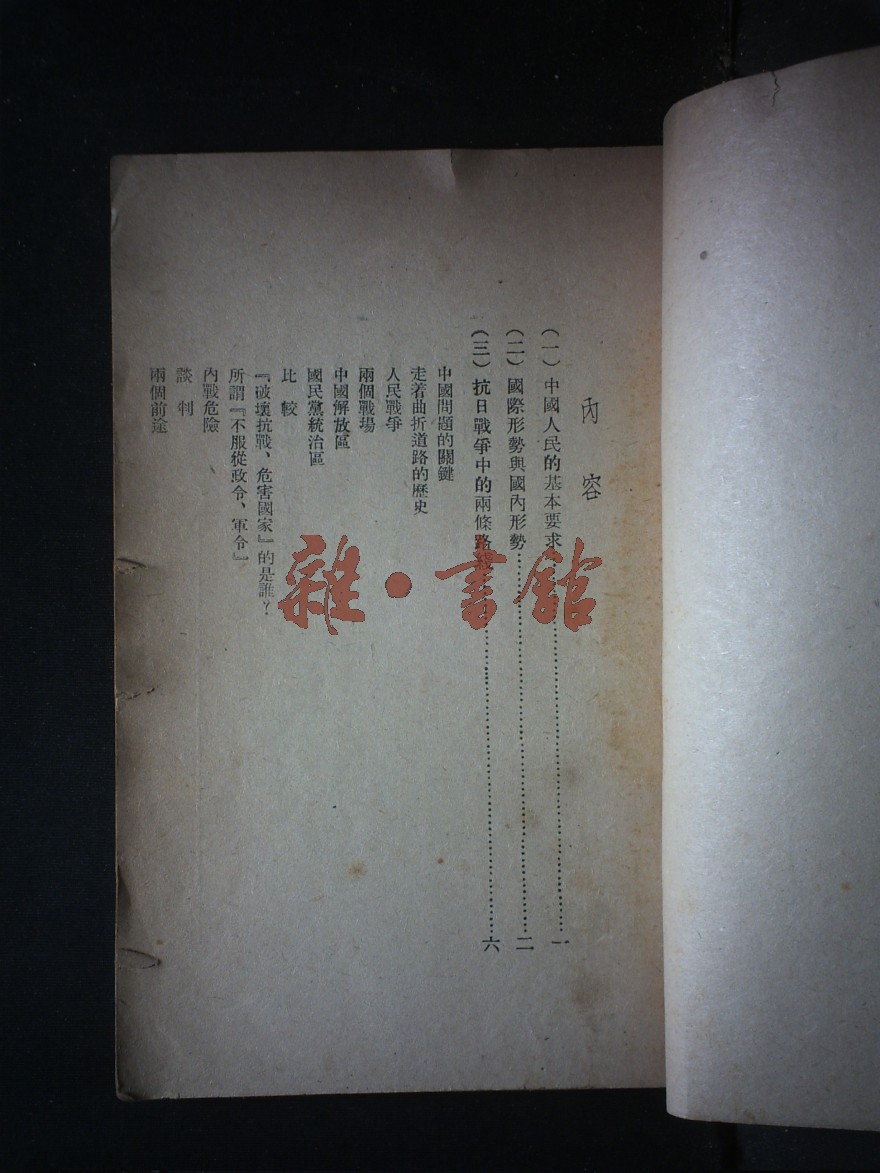 內容
(一)中國人民的基本要求……一
(二)國際形勢與國內形勢……二
(三)抗日戰爭中的兩條路綫……六
中國問題的關鍵
走着曲折道路的歷史
人民戰爭
兩個戰場
中國解放區
國民黨統治區
比較
『破壞抗戰、危害國家』的是誰？
所謂『不服從政令、軍令』
內戰危險
談判
兩個前途
雜·書館